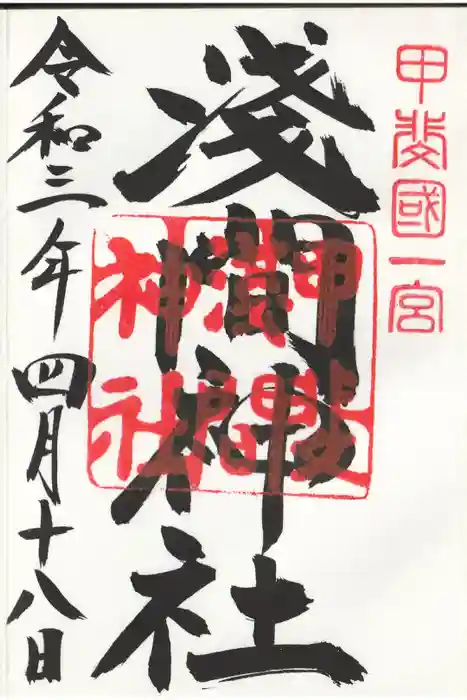 甲斐國一宮
淺間神社
甲斐
淺間
神社
令和三年四月十八日